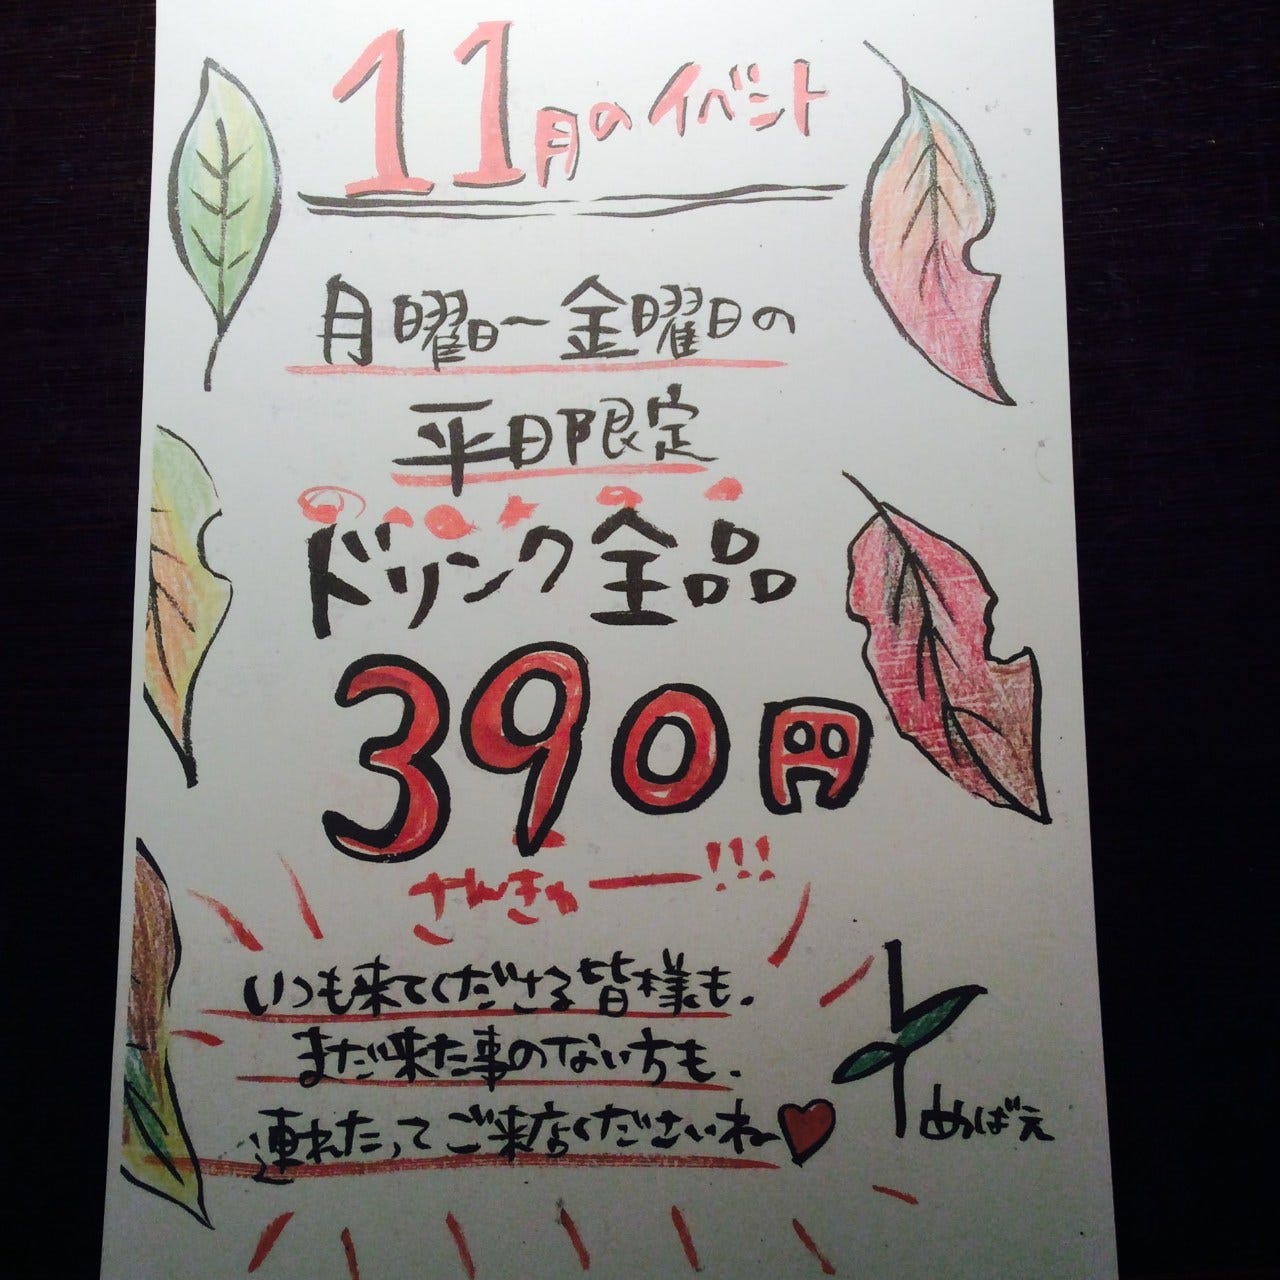 11月のイベント
月曜日〜金曜日の
平日限定
ドリンク全品
390円
さんきゅー!!!
いつも来てくださる皆様も、
まだ来た事のない方も、
連れたってご来店くださいね
めばえ